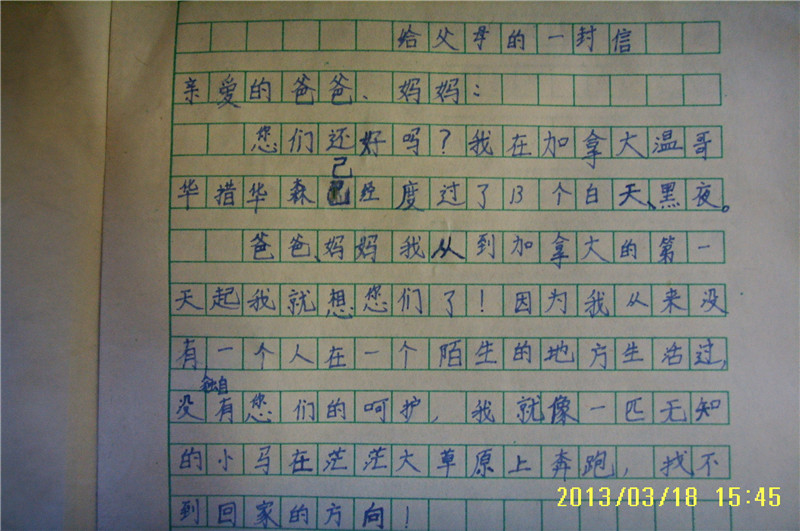 给父母的一封信
亲爱的爸爸、妈妈：
您们还好吗？我在加拿大温哥
华措华森已经度过了13个白天、黑夜。
爸爸、妈妈我从到加拿大的第一
天起我就想您们了！因为我从来没
有一个人在一个陌生的地方生活过，
独自
没有您们的呵护，我就像一匹无知
的小马在茫茫大草原上奔跑，找不
到回家的方向！
2013/03/18 15:45